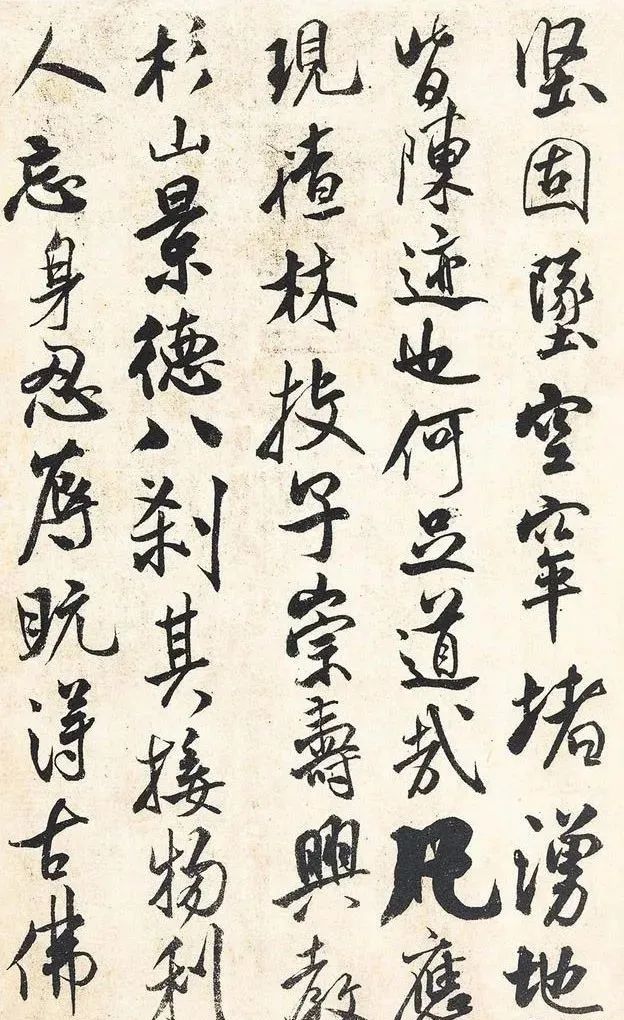 堅固墜空窣堵湧地
皆陳迹也何足道哉凡應
現樝林投子崇壽興教
杉山景德八刹其接物利
人忘身忍辱既得古佛